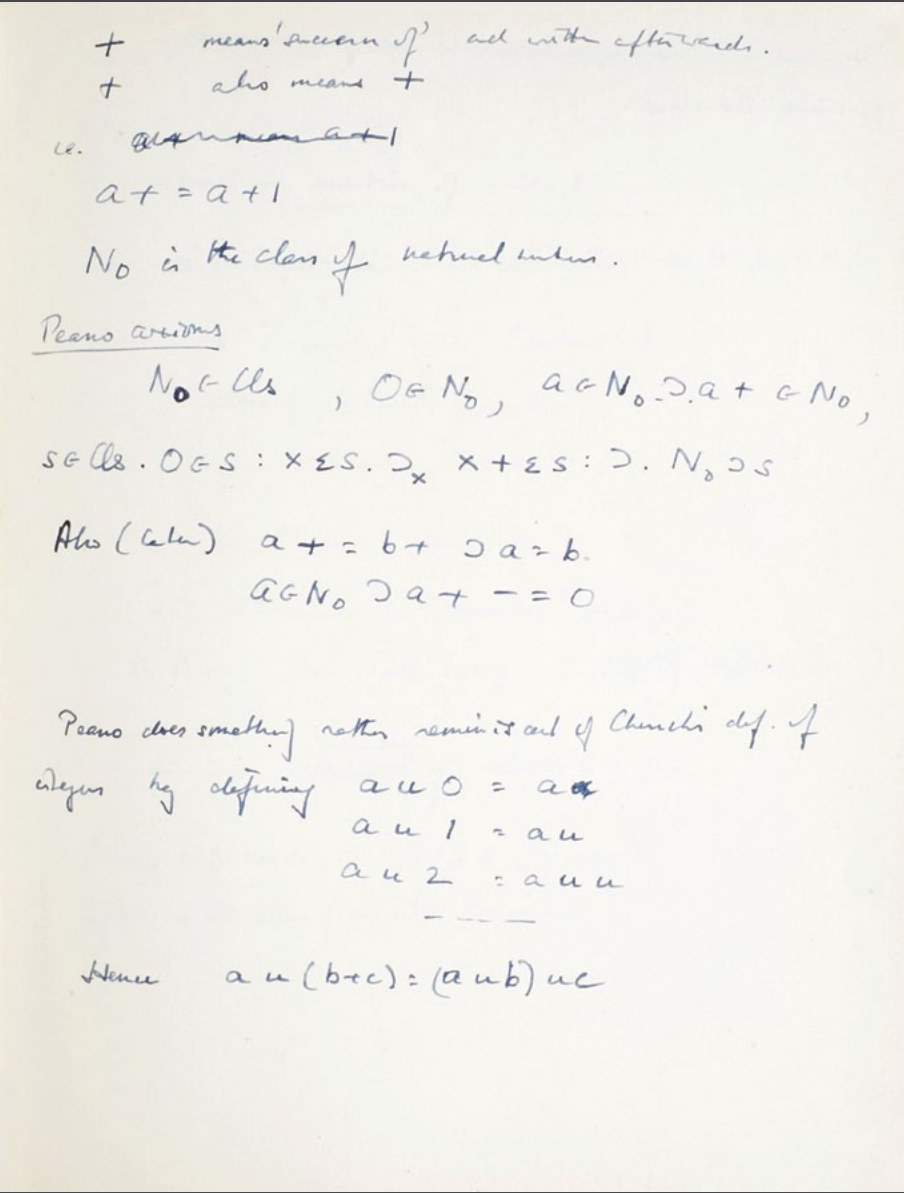 + means 'successor of' and written afterwards.
+ also means +
i.e. a+ means a+1
a+ = a+1
N₀ is the class of natural numbers.
Peano axioms
N₀ ∈ Cls , 0 ∈ N₀, a ∈ N₀ .⊃. a + ∈ N₀,
s ∈ Cls . 0 ∈ s : x ε s . ⊃ₓ x + ε s : ⊃ . N₀ ⊃ s
Also (later) a + = b + ⊃ a = b.
a ∈ N₀ ⊃ a + - = 0
Peano does something rather reminiscent of Church's def. of
integers by defining a u 0 = a
a u 1 = a u
a u 2 = a u u
- - - -
Hence a u (b+c) = (a u b) u c